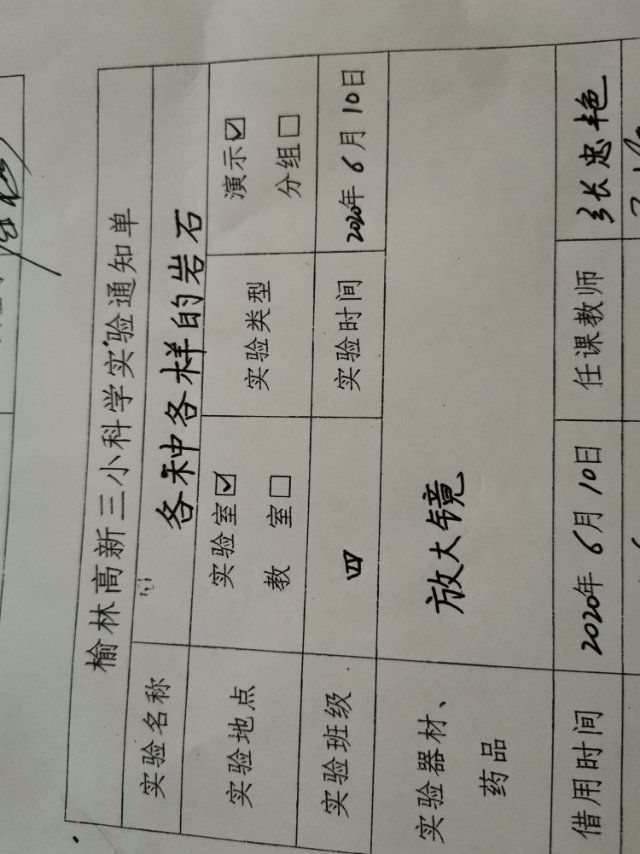 榆林高新三小科学实验通知单
实验名称 各种各样的岩石
实验地点 实验室☑ 教 室☐ 实验类型 演示☑ 分组☐
实验班级 四 实验时间 2020年 6月 10日
实验器材、药品 放大镜
借用时间 2020年 6月 10日 任课教师 张忠艳